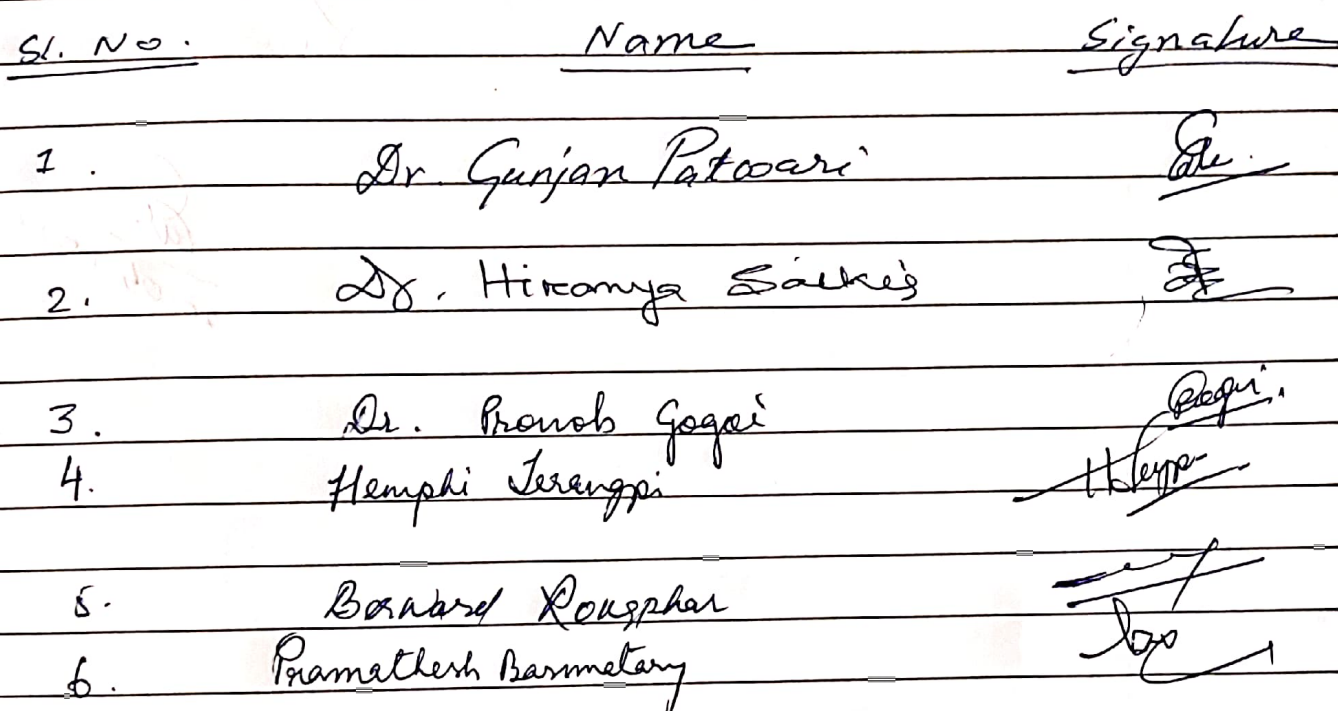 Sl. No. Name Signature
1. Dr. Gunjan Patowari
2. Dr. Hiranya Saikia
3. Dr. Pronob Gogoi
4. Hemphi Terangpi
5. Bernard Rongphar
6. Pramathesh Barmetary